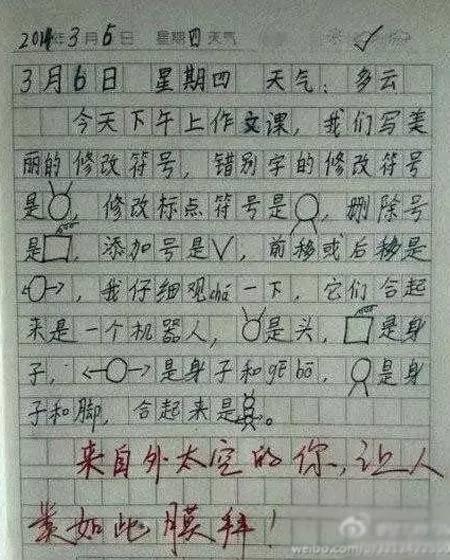 2014年3月6日 星期四 天气
3月6日 星期四 天气：多云
今天下午上作文课，我们写美
丽的修改符号，错别字的修改符号
是 修改标点符号是 ，删除号
是 ，添加号是√，前移或后移是
，我仔细观chá一下，它们合起
来是一个机器人， 是头， 是身
子， 是身子和gē bō， 是身
子和脚，合起来是 。
来自外太空的你，让人
类如此膜拜！
weibo.com/